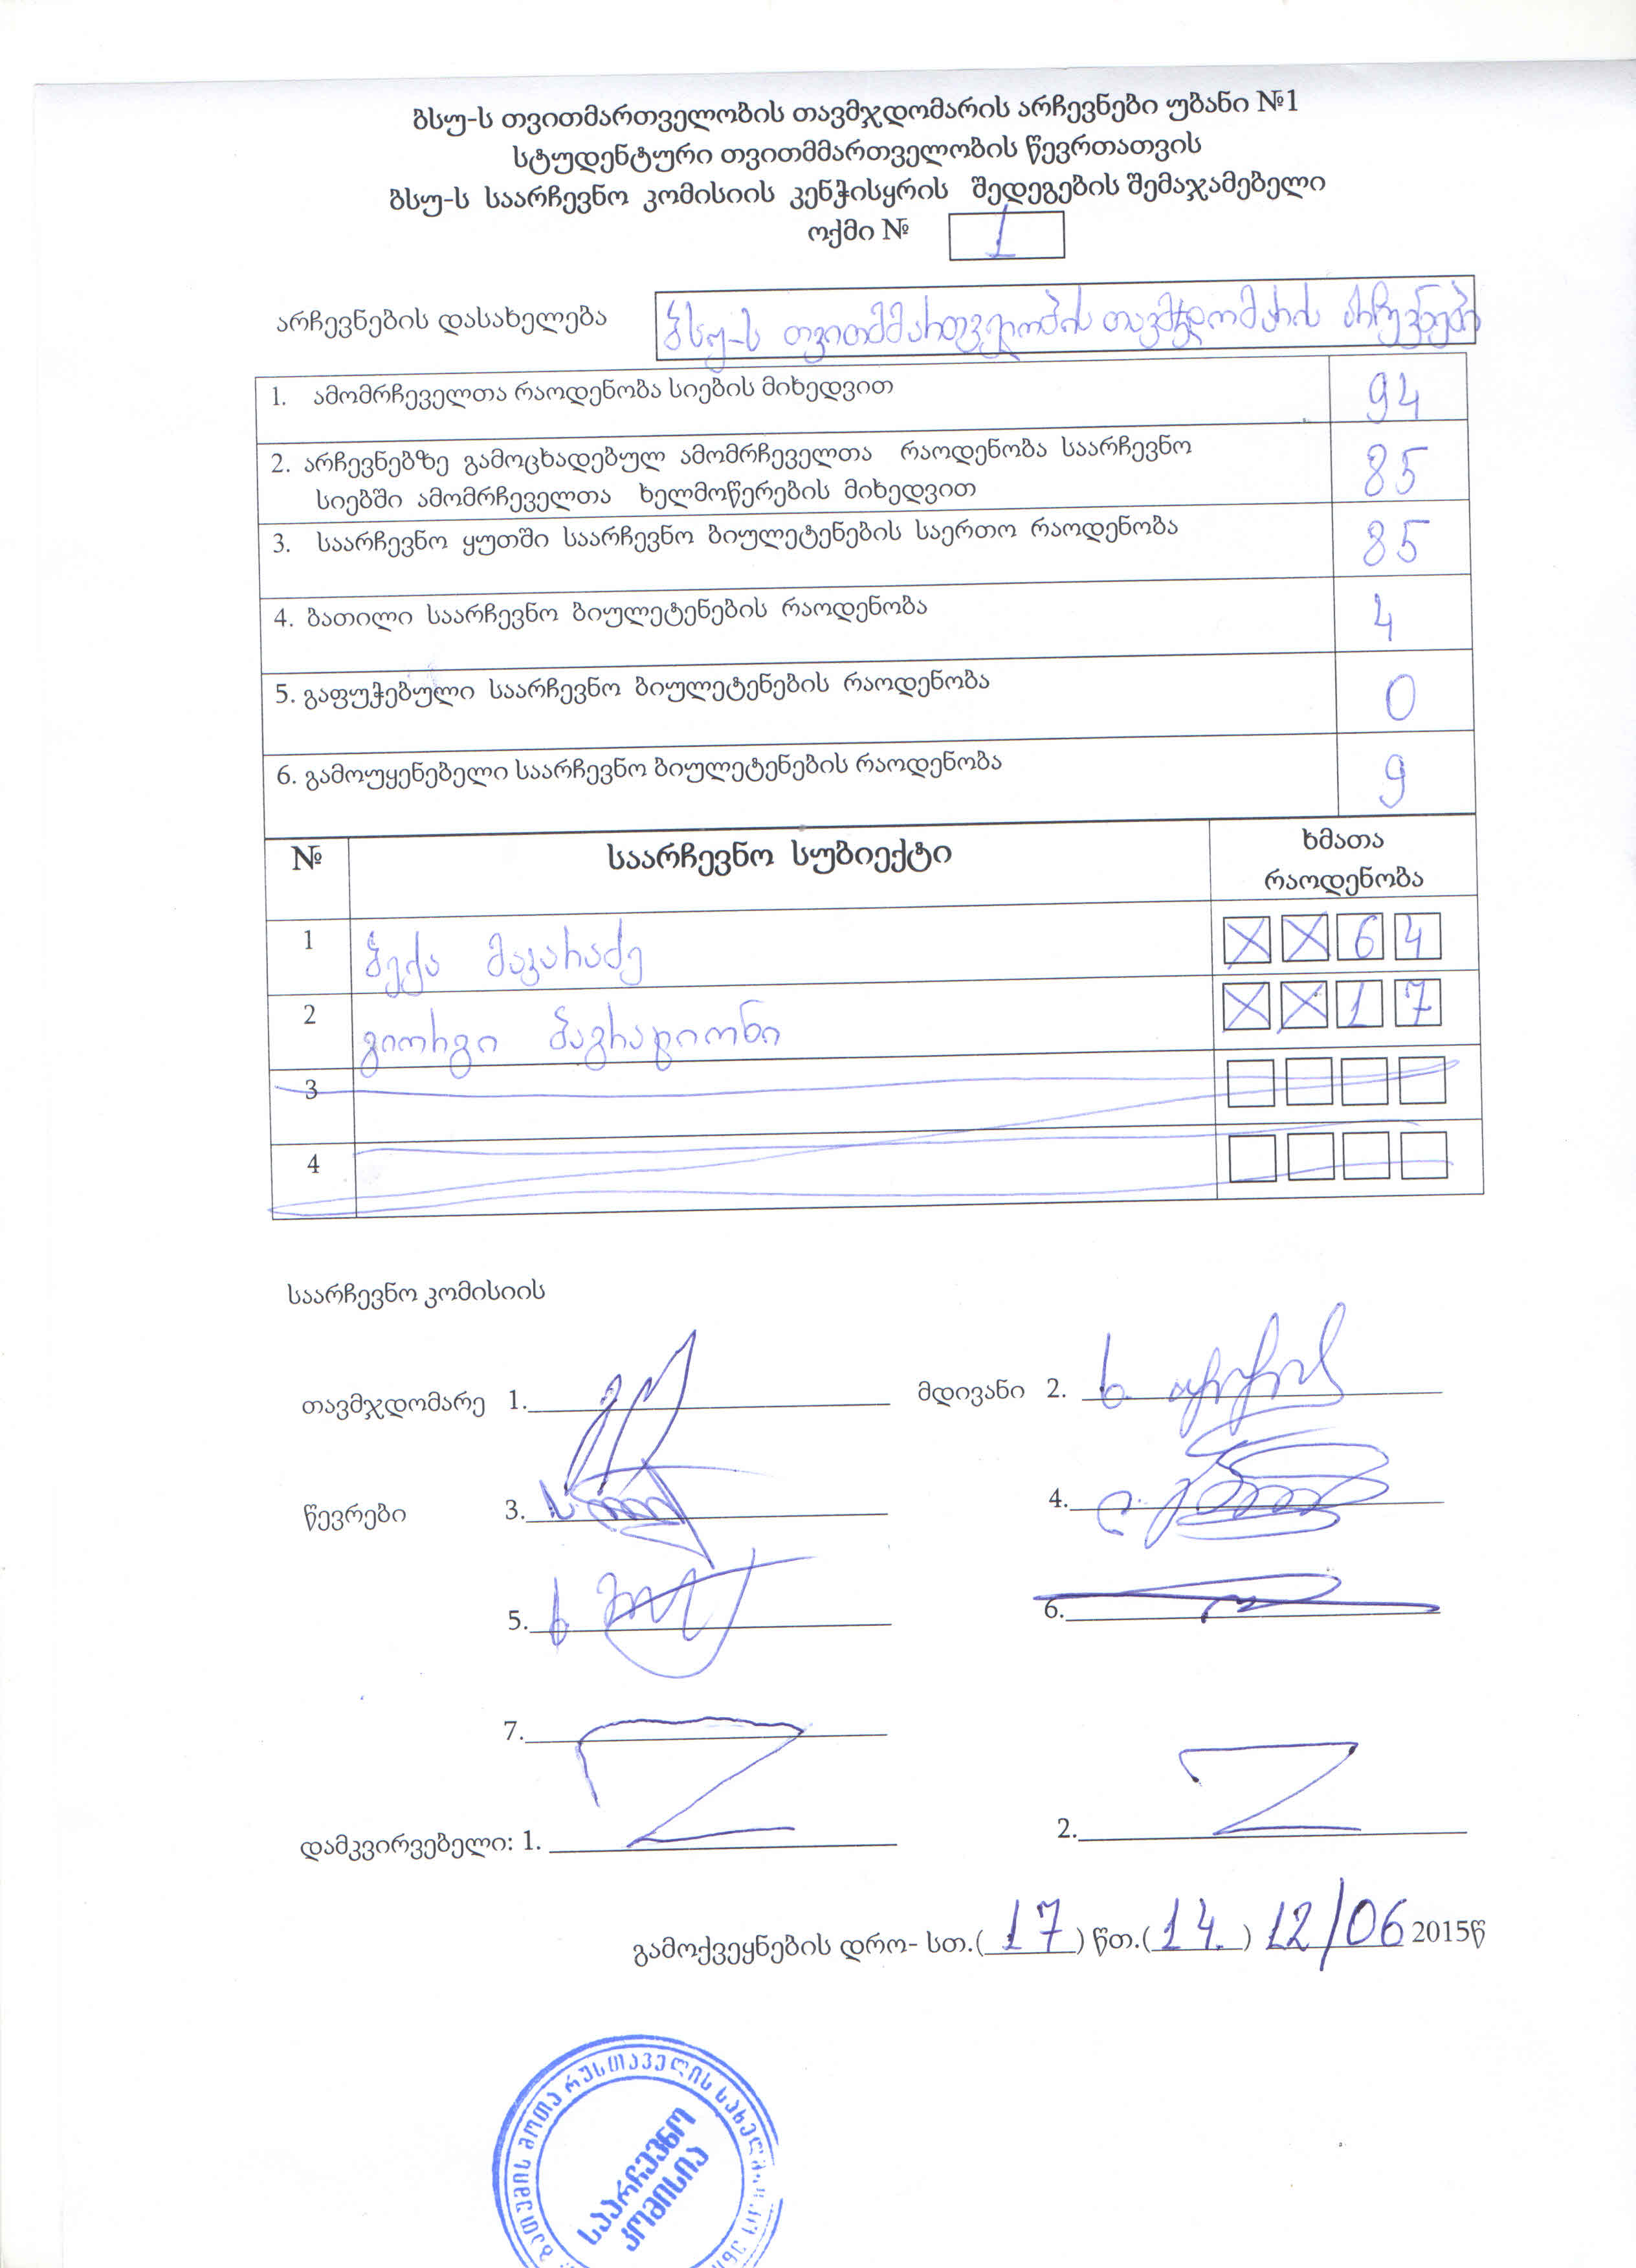 ბსუ-ს თვითმართველობის თავმჯდომარის არჩევნები უბანი №1
სტუდენტური თვითმმართველობის წევრთათვის
ბსუ-ს საარჩევნო კომისიის კენჭისყრის შედეგების შემაჯამებელი
ოქმი № 1
არჩევნების დასახელება ბსუ-ს თვითმმართველობის თავმჯდომარის არჩევნები
1. ამომრჩეველთა რაოდენობა სიების მიხედვით 94
2. არჩევნებზე გამოცხადებულ ამომრჩეველთა რაოდენობა საარჩევნო
სიებში ამომრჩეველთა ხელმოწერების მიხედვით 85
3. საარჩევნო ყუთში საარჩევნო ბიულეტენების საერთო რაოდენობა 85
4. ბათილი საარჩევნო ბიულეტენების რაოდენობა 4
5. გაფუჭებული საარჩევნო ბიულეტენების რაოდენობა 0
6. გამოუყენებელი საარჩევნო ბიულეტენების რაოდენობა 9
№ საარჩევნო სუბიექტი ხმათა
რაოდენობა
1 ბექა მაკარაძე X X 6 4
2 გიორგი ბაგრატიონი X X 1 7
3
4
საარჩევნო კომისიის
თავმჯდომარე 1. მდივანი 2.
წევრები 3. 4.
5. 6.
7.
დამკვირვებელი: 1. 2.
გამოქვეყნების დრო- სთ.(17) წთ.(14.) 12/06 2015წ
ბათუმის შოთა რუსთაველის
საარჩევნო
კომისია